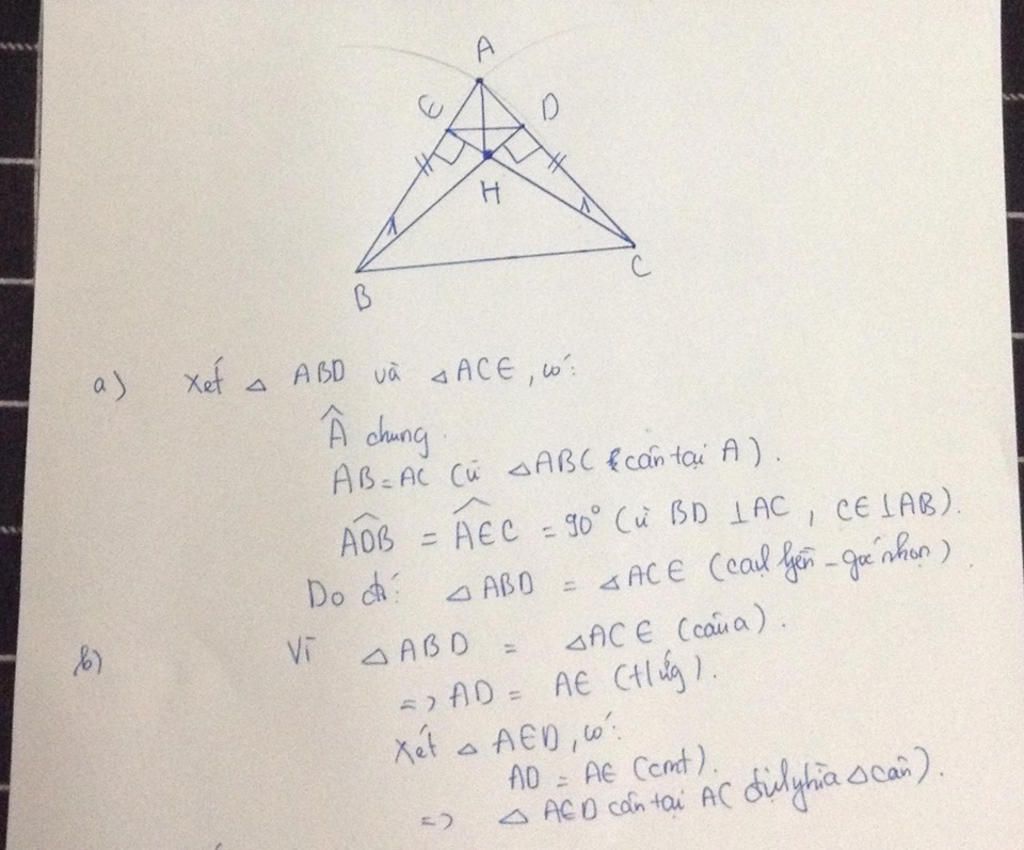 A
E
D
H
1
1
B
C
a) Xét △ ABD và △ACE, có:
Â chung.
AB = AC (Vì △ABC cân tại A).
ADB = AEC = 90° (Vì BD ⊥ AC, CE ⊥ AB).
Do đó: △ ABD = △ACE (cạnh huyền - góc nhọn)
b) Vì △ ABD = △ACE (câu a).
=> AD = AE (t/ứng).
Xét △ AED, có:
AD = AE (cmt).
=> △ AED cân tại A( định nghĩa △ cân).